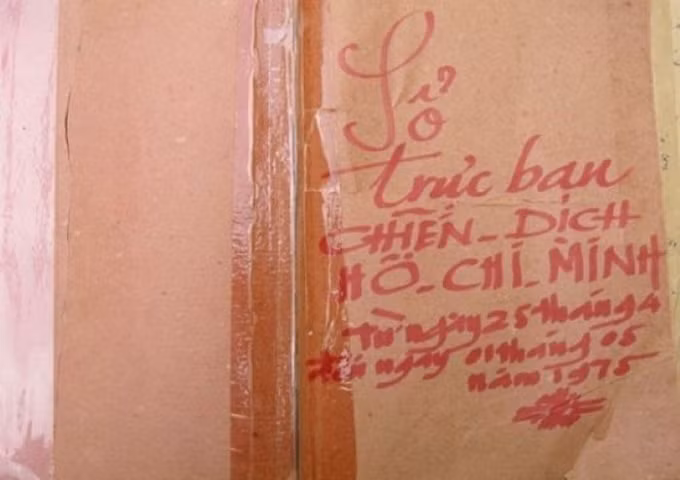 Sổ
trực ban
CHIẾN-DỊCH
HỒ-CHÍ-MINH
Từ ngày 25 tháng 4
đến ngày 01 tháng 05
năm 1975